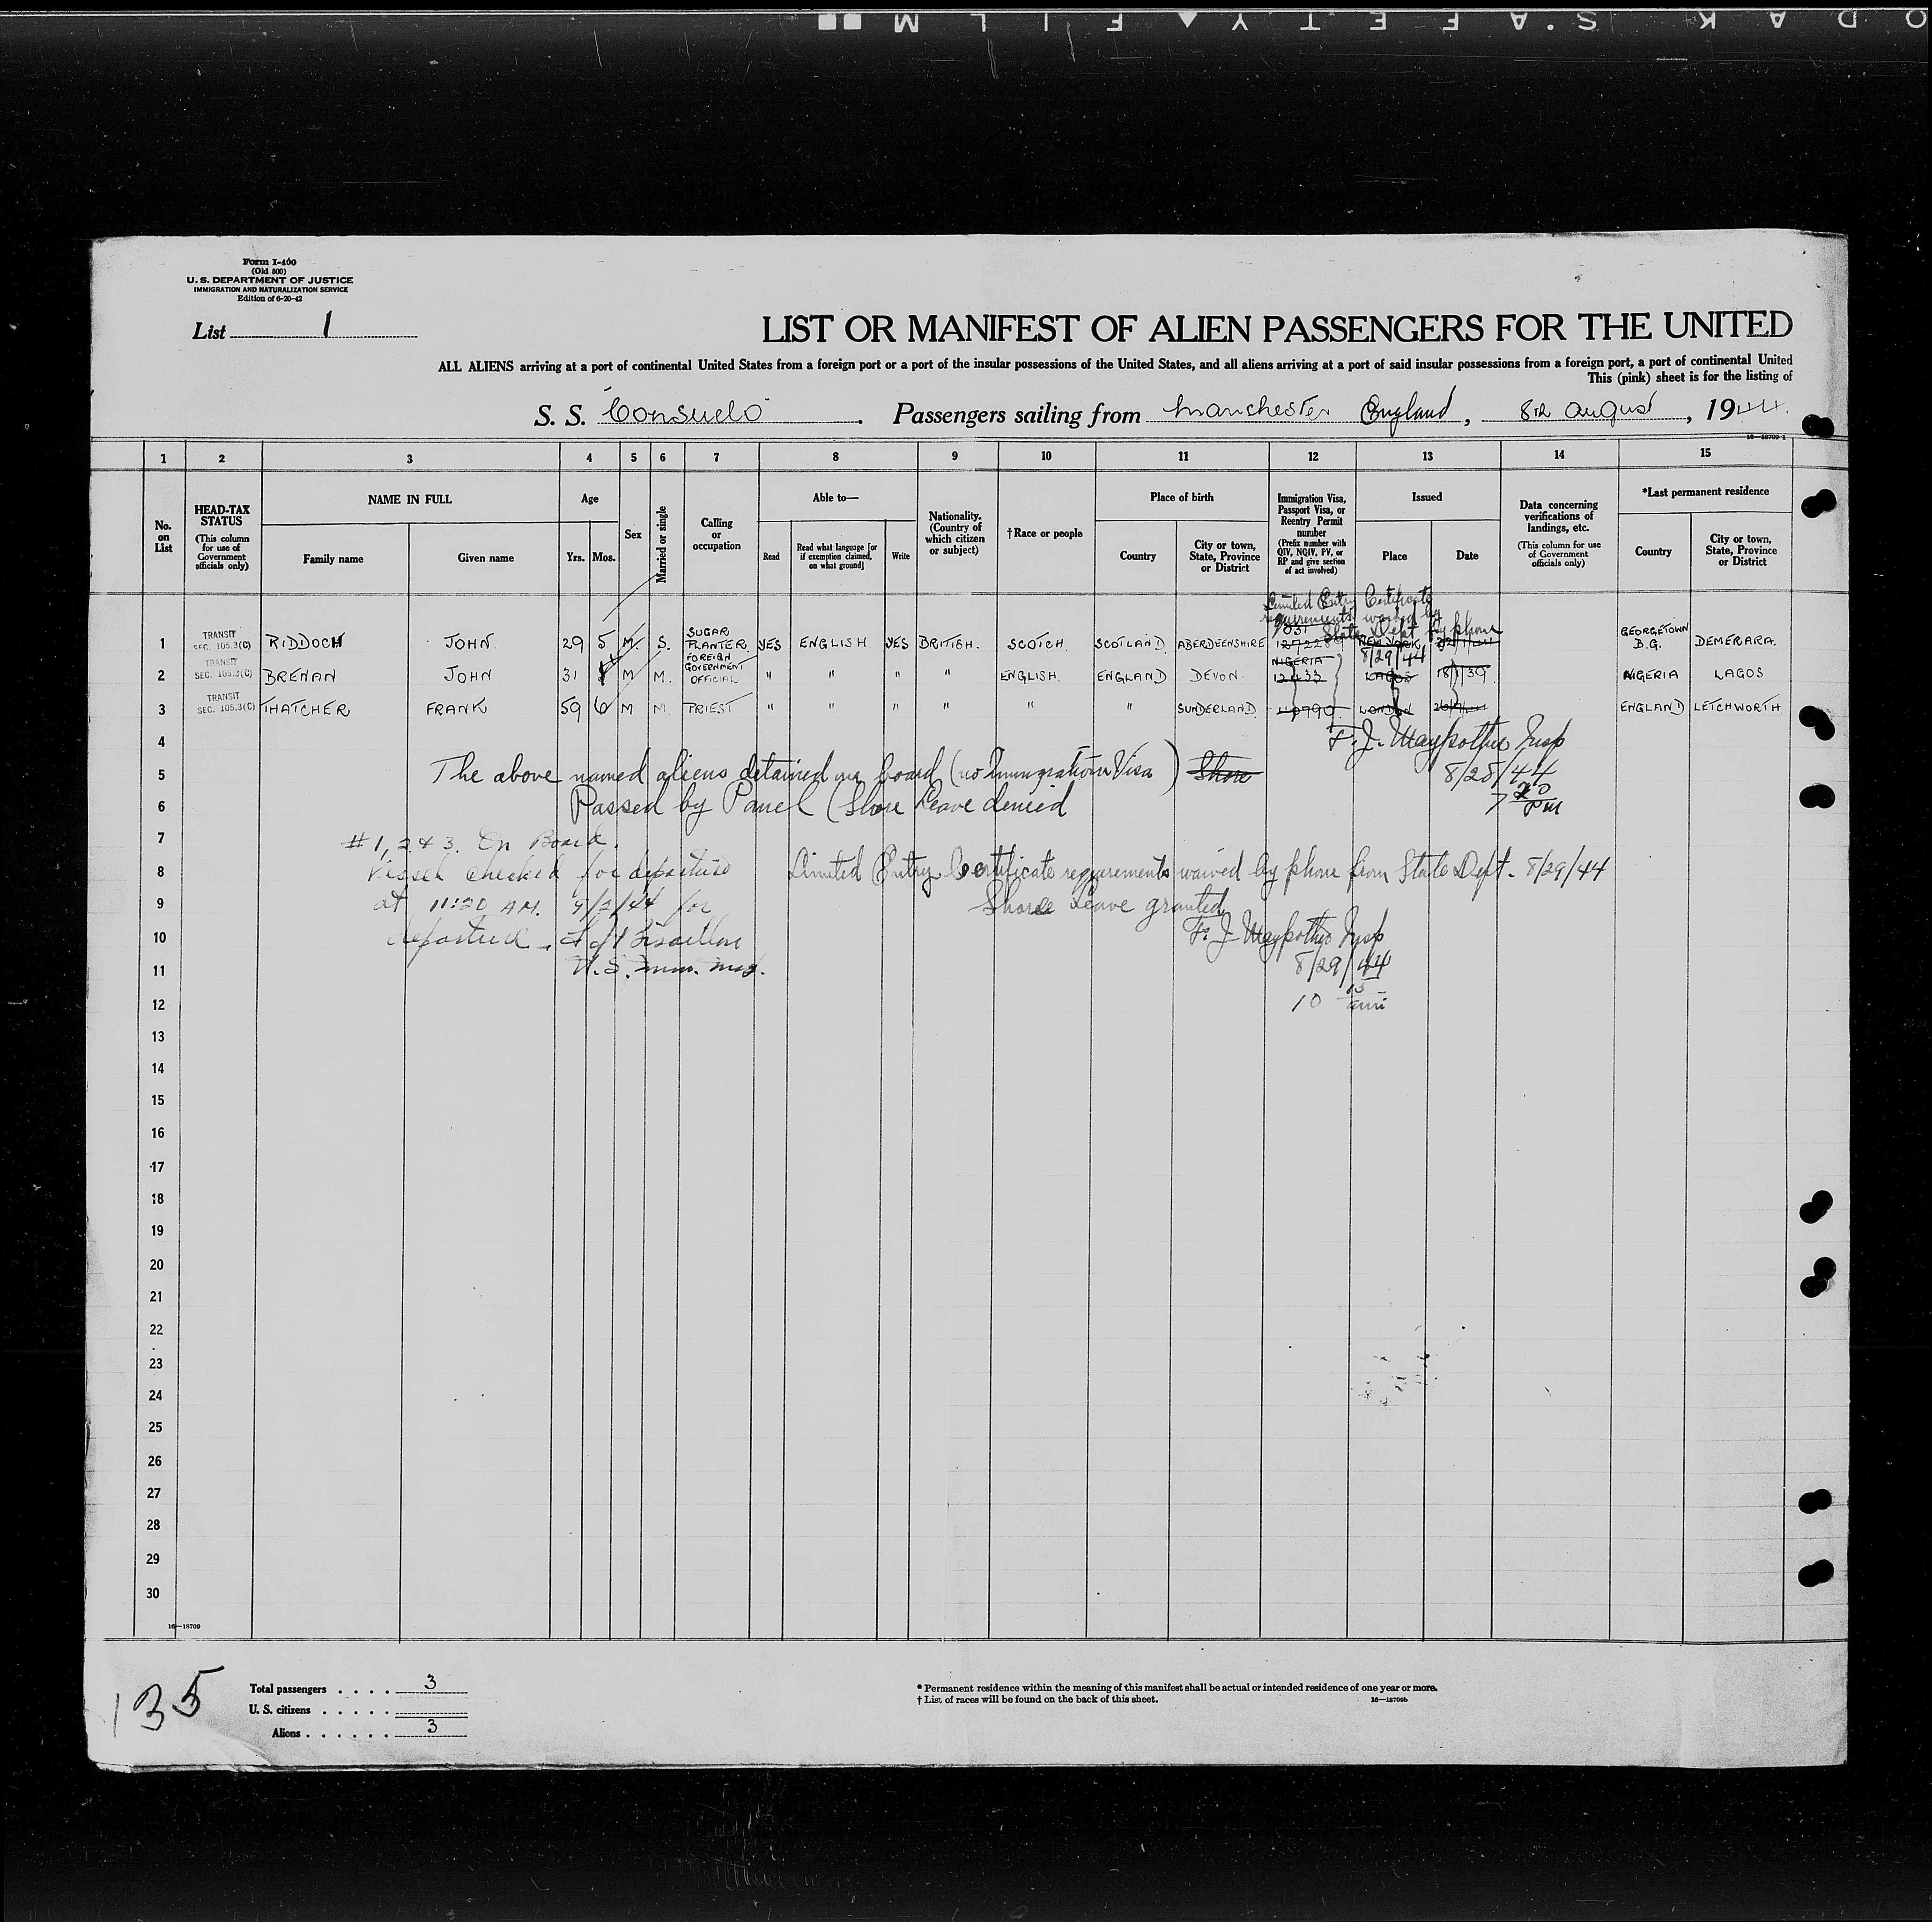 KODAK SAFETY FILM
Form I-400
(Old 500)
U. S. DEPARTMENT OF JUSTICE
IMMIGRATION AND NATURALIZATION SERVICE
Edition of 6-20-42
List 1
LIST OR MANIFEST OF ALIEN PASSENGERS FOR THE UNITED
ALL ALIENS arriving at a port of continental United States from a foreign port or a port of the insular possessions of the United States, and all aliens arriving at a port of said insular possessions from a foreign port, a port of continental United
This (pink) sheet is for the listing of
S. S. Consuelo . Passengers sailing from Manchester England , 8th August , 1944.
16—18709-1
1 2 3 4 5 6 7 8 9 10 11 12 13 14 15
No. on List
HEAD-TAX STATUS (This column for use of Government officials only)
NAME IN FULL
Family name
Given name
Age
Yrs. Mos.
Sex
Married or single
Calling or occupation
Able to—
Read
Read what language [or if exemption claimed, on what ground]
Write
Nationality. (Country of which citizen or subject)
†Race or people
Place of birth
Country
City or town, State, Province or District
Immigration Visa, Passport Visa, or Reentry Permit number (Prefix number with QIV, NQIV, PV, or RP and give section of act involved)
Issued
Place
Date
Data concerning verifications of landings, etc. (This column for use of Government officials only)
*Last permanent residence
Country
City or town, State, Province or District
Limited Entry Certificate
requirements waived by
State Dept by phone
8/29/44
1 TRANSIT SEC. 105.3(C) RIDDOCH JOHN 29 5 M. S. SUGAR PLANTER. YES ENGLISH YES BRITISH. SCOTCH. SCOTLAND ABERDEENSHIRE NEW YORK GEORGETOWN B.G. DEMERARA.
2 TRANSIT SEC. 105.3(C) BRENAN JOHN 31 M M. FOREIGN GOVERNMENT OFFICIAL " " " " ENGLISH. ENGLAND DEVON NIGERIA 12433 LAGOS 18/1/39 NIGERIA LAGOS
3 TRANSIT SEC. 105.3(C) THATCHER FRANK 59 6 M M. PRIEST " " " " " " SUNDERLAND LONDON ENGLAND LETCHWORTH
4
5
6
7
8
9
10
11
12
13
14
15
16
17
18
19
20
21
22
23
24
25
26
27
28
29
30
F. J. Maypother Insp
8/28/44
7 20 pm
The above named aliens detained on board (no Immigration Visa ) Shore
Passed by Panel (Shore Leave denied
# 1, 2 & 3. On Board.
Vessel checked for departure
at 11:20 A.M. 9/2/44 for
departure.
U.S. Imm. Insp.
Limited Entry Certificate requirements waived by phone from State Dept. 8/29/44
Shore Leave granted
F. J. Maypother Insp
8/29/44
10 15 am
16—18709
135
Total passengers . . . . 3
U. S. citizens . . . . .
Aliens . . . . . . 3
* Permanent residence within the meaning of this manifest shall be actual or intended residence of one year or more.
† List of races will be found on the back of this sheet.
16—18709b